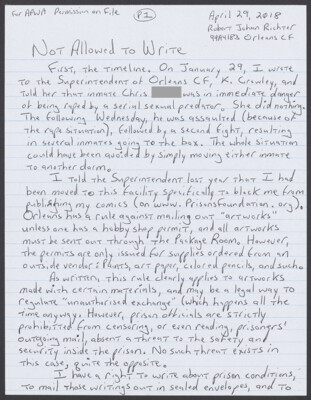 For APWA Permission on File
P1
April 29, 2018
Robert Johan Richter
94A4183 Orleans CF
Not Allowed to Write
First, the timeline. On January 29, I wrote
to the Superintendent of Orleans CF, K. Crowley, and
told her that inmate Chris was in immediate danger
of being raped by a serial sexual predator. She did nothing.
The following Wednesday, he was assaulted (because of
the rape situation), followed by a second fight, resulting
in several inmates going to the box. The whole situation
could have been avoided by simply moving either inmate
to another dorm.
I told the Superintendent last year that I had
been moved to this facility specifically to block me from
publishing my comics (on www.PrisonsFoundation.org).
Orleans has a rule against mailing out "artworks"
unless one has a hobby shop permit, and all artworks
must be sent out through the Package Room. However,
the permits are only issued for supplies ordered from an
outside vendor: paints, art paper, colored pencils, and such.
As written, this rule clearly applies to artworks
made with certain materials, and may be a legal way to
regulate "unauthorised exchange" (which happens all the
time anyway. However, prison officials are strictly
prohibited from censoring, or even reading, prisoners'
outgoing mail, absent a threat to the safety and
security inside the prison. No such threat exists in
this case; quite the opposite.
I have a right to write about prison conditions,
to mail those writings out in sealed envelopes, and to